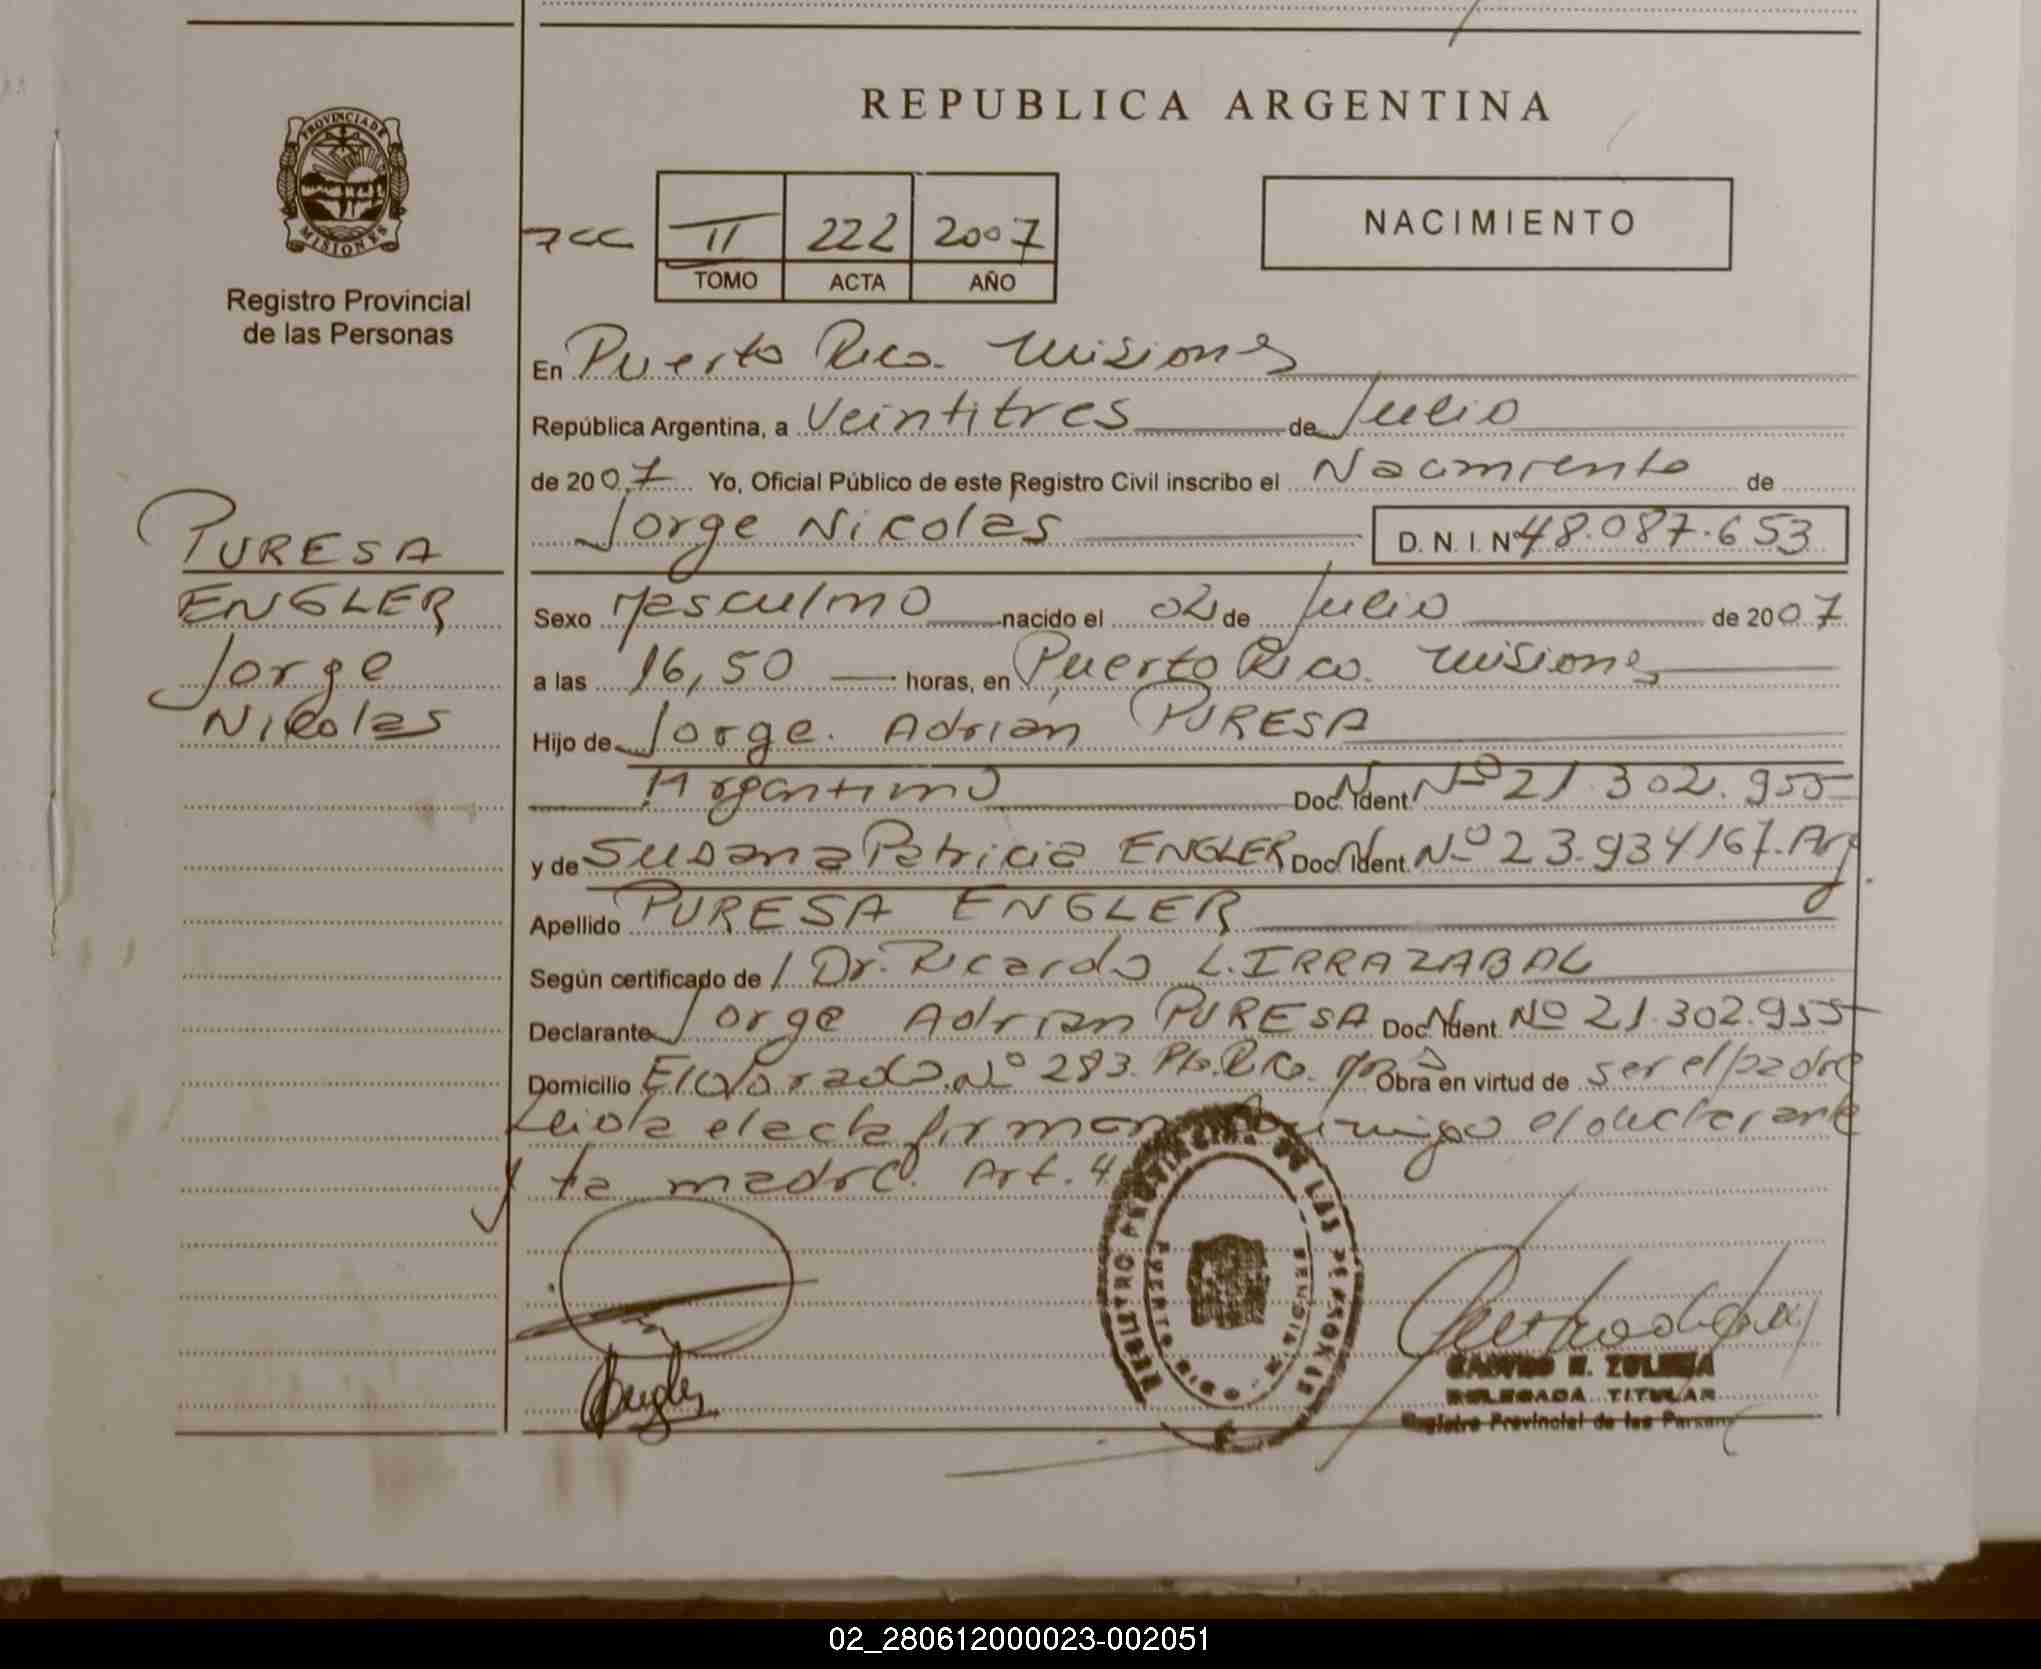 REPUBLICA ARGENTINA
PROVINCIA DE MISIONES
Registro Provincial
de las Personas
7CC II 222 2007
TOMO ACTA AÑO
NACIMIENTO
En Puerto Rico. Misiones
República Argentina, a Veintitres de Julio
de 2007 Yo, Oficial Público de este Registro Civil inscribo el Nacimiento de
Jorge Nicolas D. N. I. Nº 48.087.653
PURESA
ENGLER
Jorge
Nicolas
Sexo Masculino nacido el 02 de Julio de 2007
a las 16,50 horas, en Puerto Rico. Misiones
Hijo de Jorge. Adrian PURESA
Argentino Doc. Ident. Nº 21.302.955
y de Susana Patricia ENGLER Doc. Ident. Nº 23.934167. Arg.
Apellido PURESA ENGLER
Según certificado de Dr. Ricardo L. IRRAZABAL
Declarante Jorge Adrian PURESA Doc. Ident. Nº 21.302.955
Domicilio Eldorado. Nº 283. Pto. Rico. Obra en virtud de ser el padre
Leida el acta firman conmigo el declarante
y la madre. Art. 4
REGISTRO PROVINCIAL DE LAS PERSONAS
PUERTO RICO
MISIONES
Engler
DELEGADA TITULAR
Registro Provincial de las Personas
02_280612000023-002051